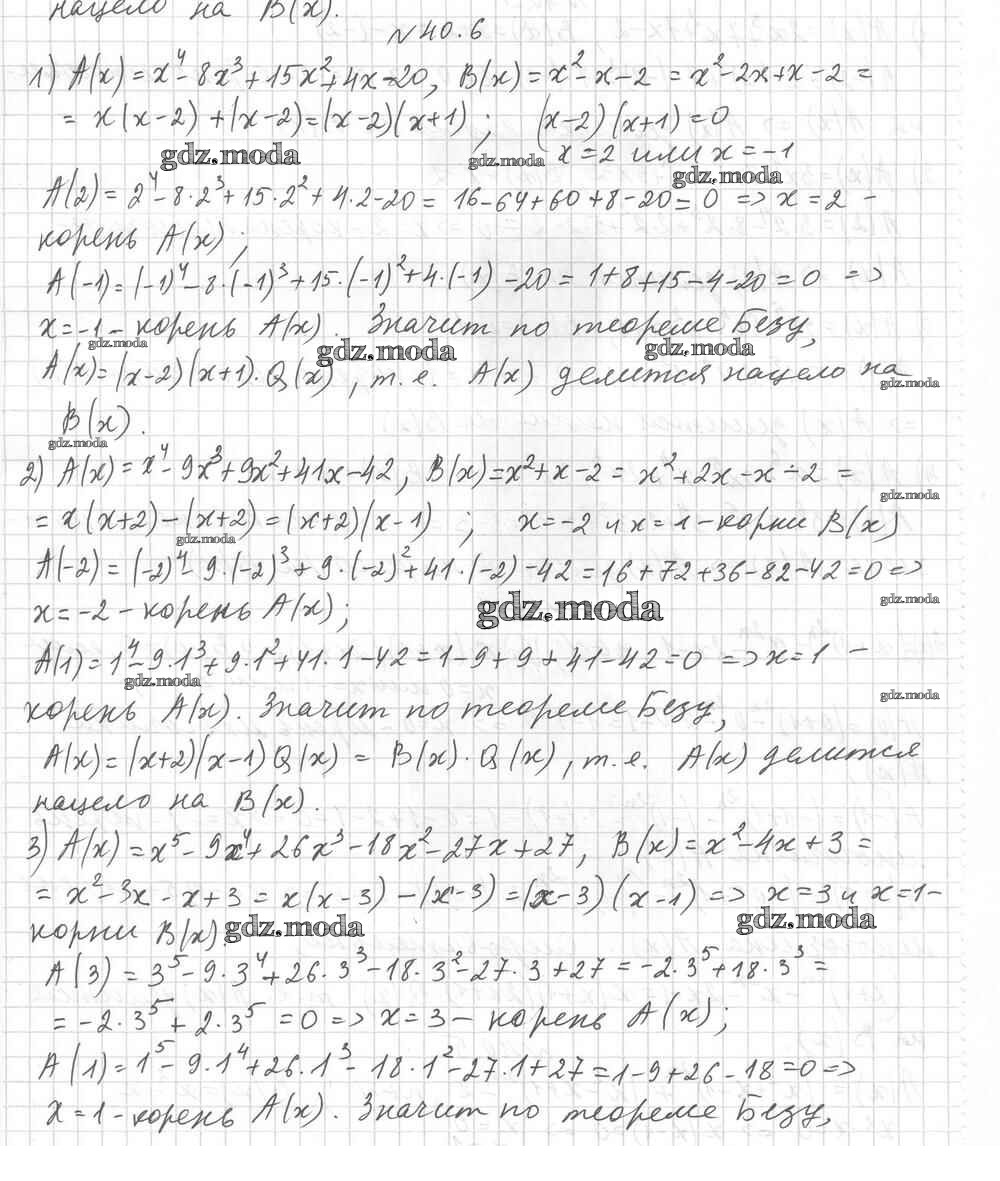 нацело на B(x).
№40.6
1) A(x) = x⁴ - 8x³ + 15x² + 4x - 20, B(x) = x² - x - 2 = x² - 2x + x - 2 =
= x(x-2) + (x-2) = (x-2)(x+1) ; (x-2)(x+1) = 0
gdz.moda gdz.moda x = 2 или x = -1
gdz.moda
A(2) = 2⁴ - 8·2³ + 15·2² + 4·2 - 20 = 16 - 64 + 60 + 8 - 20 = 0 => x = 2 -
корень A(x) ;
A(-1) = (-1)⁴ - 8·(-1)³ + 15·(-1)² + 4·(-1) - 20 = 1 + 8 + 15 - 4 - 20 = 0 =>
x = -1 - корень A(x). Значит по теореме Безу,
gdz.moda gdz.moda gdz.moda
A(x) = (x-2)(x+1)·Q(x) , т.е. A(x) делится нацело на
gdz.moda
B(x).
gdz.moda
2) A(x) = x⁴ - 9x³ + 9x² + 41x - 42, B(x) = x² + x - 2 = x² + 2x - x - 2 =
gdz.moda
= x(x+2) - (x+2) = (x+2)(x-1) ; x = -2 и x = 1 - корни B(x)
gdz.moda
A(-2) = (-2)⁴ - 9·(-2)³ + 9·(-2)² + 41·(-2) - 42 = 16 + 72 + 36 - 82 - 42 = 0 =>
x = -2 - корень A(x) ; gdz.moda gdz.moda
A(1) = 1⁴ - 9·1³ + 9·1² + 41·1 - 42 = 1 - 9 + 9 + 41 - 42 = 0 => x = 1 -
gdz.moda gdz.moda
корень A(x). Значит по теореме Безу,
A(x) = (x+2)(x-1) Q(x) = B(x)·Q(x) , т.е. A(x) делится
нацело на B(x).
3) A(x) = x⁵ - 9x⁴ + 26x³ - 18x² - 27x + 27, B(x) = x² - 4x + 3 =
= x² - 3x - x + 3 = x(x-3) - (x-3) = (x-3)(x-1) => x = 3 и x = 1 -
корни B(x). gdz.moda gdz.moda
A(3) = 3⁵ - 9·3⁴ + 26·3³ - 18·3² - 27·3 + 27 = -2·3⁵ + 18·3³ =
= -2·3⁵ + 2·3⁵ = 0 => x = 3 - корень A(x) ;
A(1) = 1⁵ - 9·1⁴ + 26·1³ - 18·1² - 27·1 + 27 = 1 - 9 + 26 - 18 = 0 =>
x = 1 - корень A(x). Значит по теореме Безу,